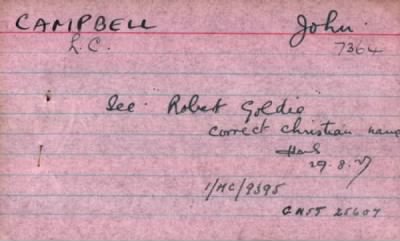 CAMPBELL John.
L.C. 7364
See Robert Goldie
correct christian name
29.8.27
1/MC/9395